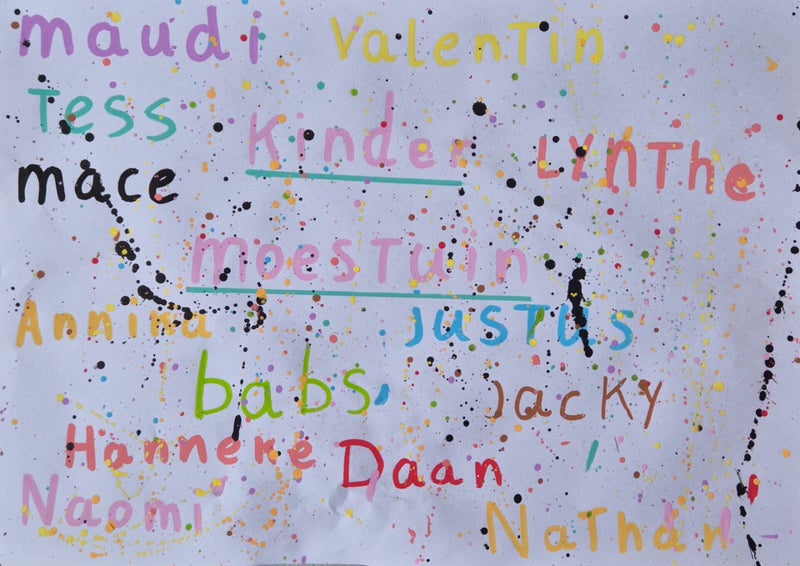 maudi Valentin
Tess
Kinder
LYNThe
mace
moesTuin
Annina
JUSTUS
babs
Jacky
Hanneke
Daan
Naomi
NaThan